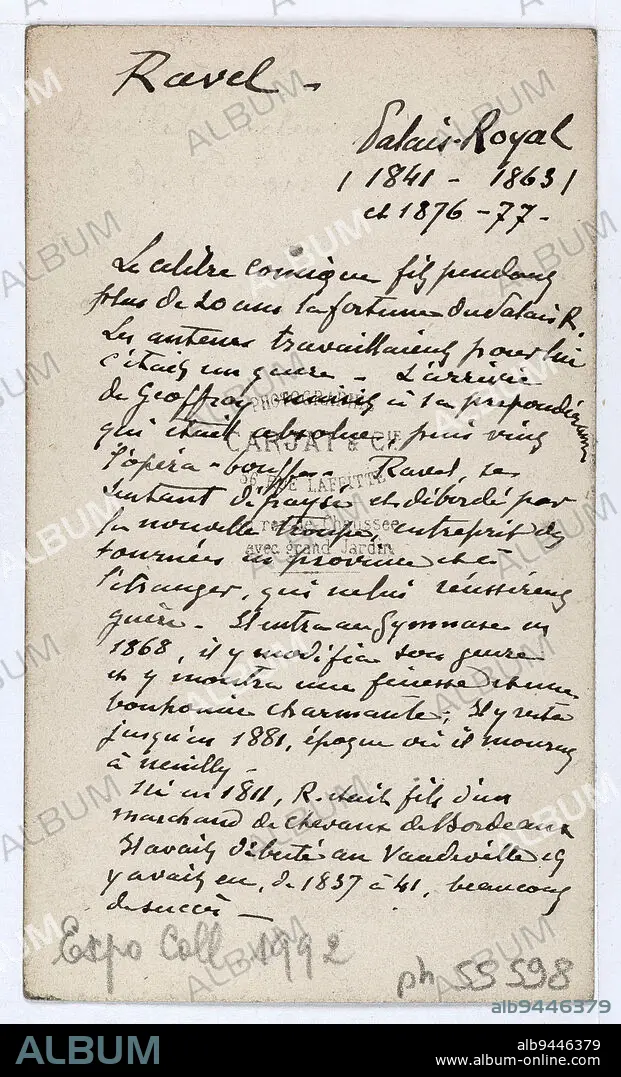 Ravel -
Palais-Royal
( 1841 - 1863 )
et 1876 - 77 -
Le célèbre comique fit pendant
plus de 20 ans la fortune du Palais R.
Les auteurs travaillaient pour lui
c'était un genre - L'arrivée
de Geoffroy nuisit à sa prépondérance
PHOTOGRAPHIE
qui était absolue, puis vint
CARJAT & Cie
l'opéra-bouffe - Ravel, se
56 RUE LAFFITTE
sentant dépaysé et débordé par
la nouvelle troupe, entreprit des
rez de Chaussée
tournées en province et à
avec grand Jardin
l'étranger, qui ne lui réussirent
guère - Il entra au Gymnase en
1868, il y modifia son genre
et y montra une finesse et une
bonhomie charmante; Il y resta
jusqu'en 1881, époque où il mourut
à Neuilly -
Né en 1811, R. était fils d'un
marchand de chevaux de Bordeaux
Il avait débuté au Vaudeville et
y avait eu, de 1837 à 41, beaucoup
de succès -
Expo Coll 1992
ph 55 598
alb9446379
ALBUM
alb9446379
www.album-online.com